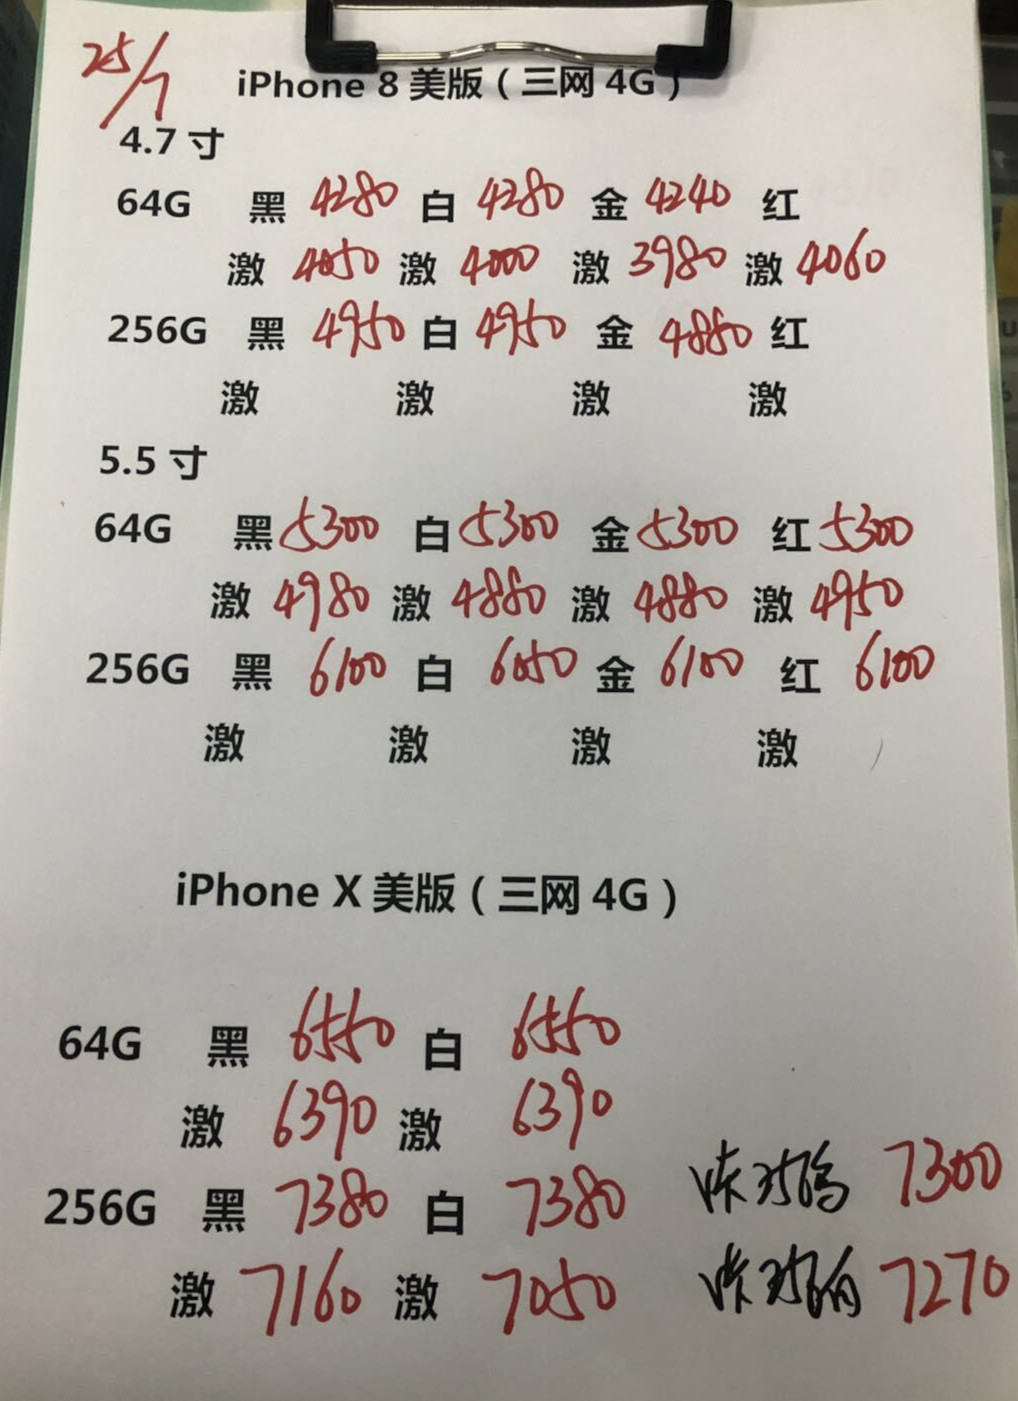 25/7
iPhone 8 美版（三网 4G）
4.7 寸
64G 黑 4280 白 4280 金 4240 红
激 4050 激 4000 激 3980 激 4060
256G 黑 4950 白 4950 金 4880 红
激 激 激 激
5.5 寸
64G 黑 5300 白 5300 金 5300 红 5300
激 4980 激 4880 激 4880 激 4950
256G 黑 6100 白 6050 金 6100 红 6100
激 激 激 激
iPhone X 美版（三网 4G）
64G 黑 6550 白 6550
激 6390 激 6390
256G 黑 7380 白 7380 7300
激 7160 激 7050 7270